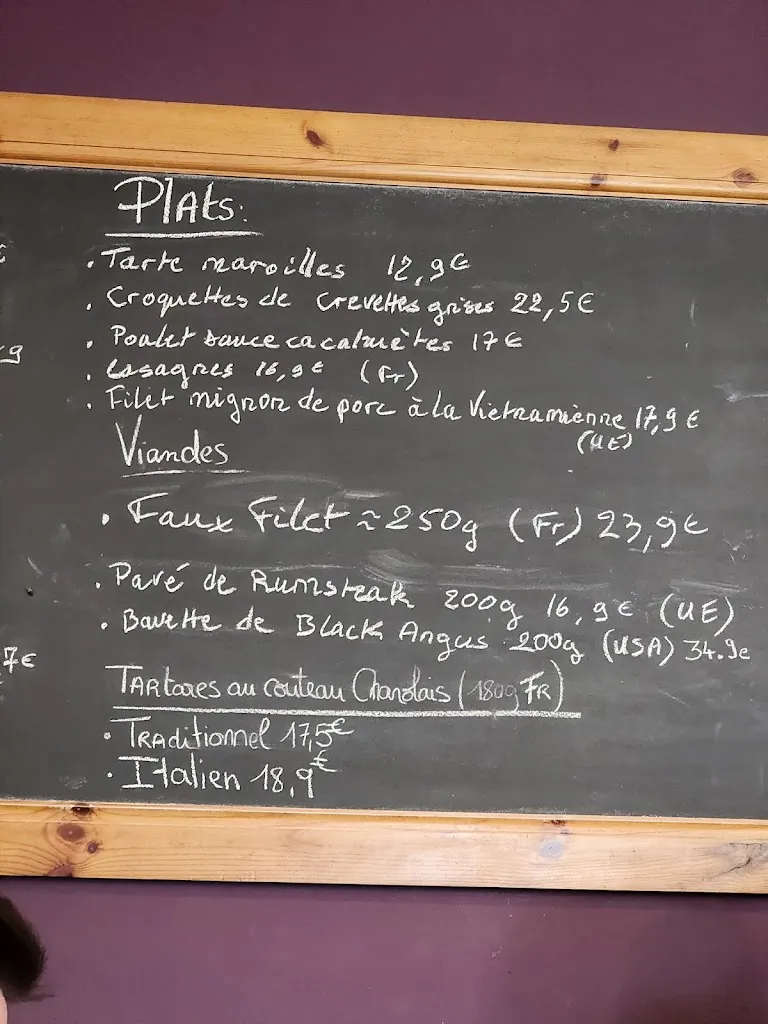 Plats:
• Tarte maroilles 12,9€
• Croquettes de crevettes grises 22,5€
• Poulet sauce cacahuètes 17€
• Lasagnes 16,9€ (Fr)
• Filet mignon de porc à la Vietnamienne 17,9€
(UE)
Viandes
• Faux Filet ≈250g (Fr) 23,9€
• Pavé de Rumsteak 200g 16,9€ (UE)
• Bavette de Black Angus 200g (USA) 34.9€
7€
Tartares au couteau Charolais (180g FR)
• Traditionnel 17,5€
• Italien 18,9€